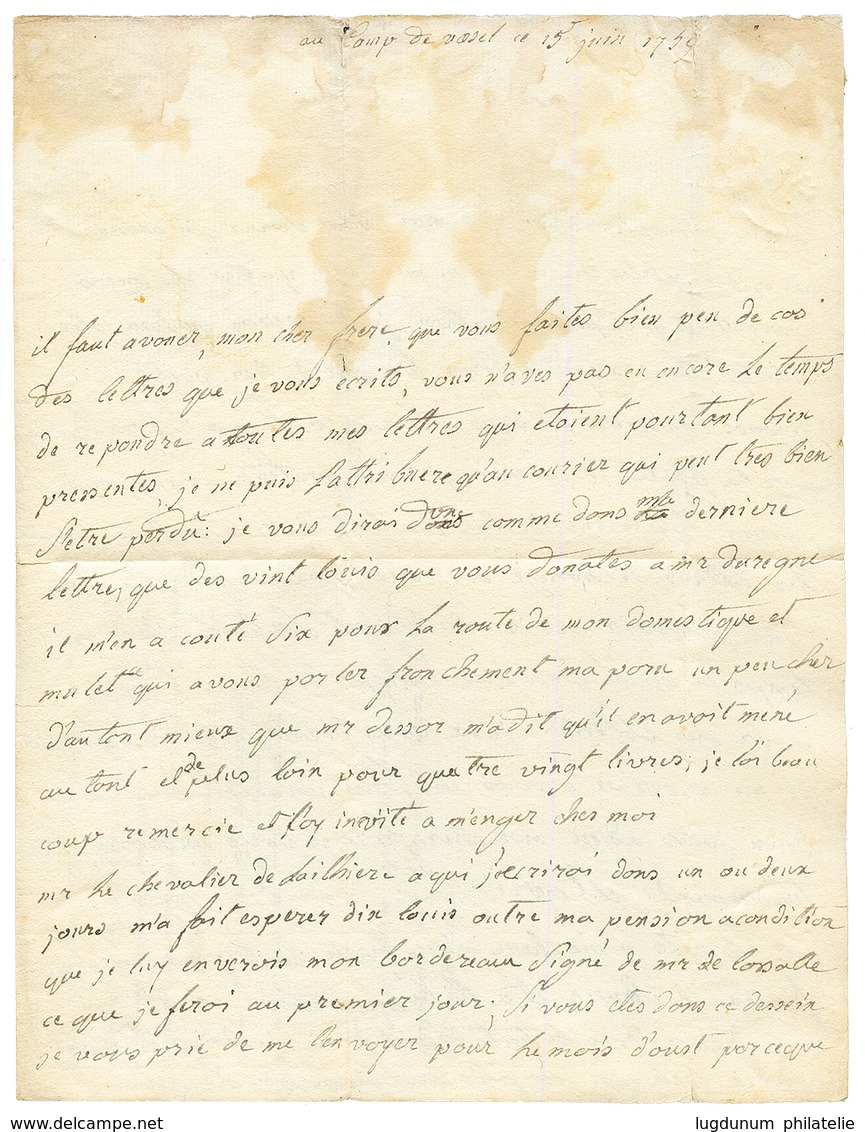 au Camp de vesel ce 15 juin 1759
il faut avouer, mon cher frere, que vous faites bien peu de cas
des lettres que je vous écrits, vous n'aves pas eu encore le temps
de repondre a toutes mes lettres qui etoient pourtant bien
pressentes, je ne puis l'attribuere qu'au courier qui peut tres bien
s'etre perdu: je vous dirai donc comme dans ma derniere
lettre, que des vint louis que vous donates a mr duregne
il m'en a couté six pour la route de mon domestique et
mulet qui a vous parler franchement ma paru un peu cher
d'autant mieux que mr dessor m'a dit qu'il en avoit mené
autant et de plus loin pour quatre vingt livres; je l'ai beau
coup remercie et l'ay invité a menger ches moi
mr le chevalier de lailhiere a qui j'ecrirai dans un ou deux
jours m'a fait esperer dix louis outre ma pension a condition
que je luy enverois mon bordereau signé de mr de lassalle
ce que je ferai au premier jour; si vous etes dans ce dessein
je vous prie de me l'envoyer pour le mois d'oust parceque
www.delcampe.net
lugdunum philatelie